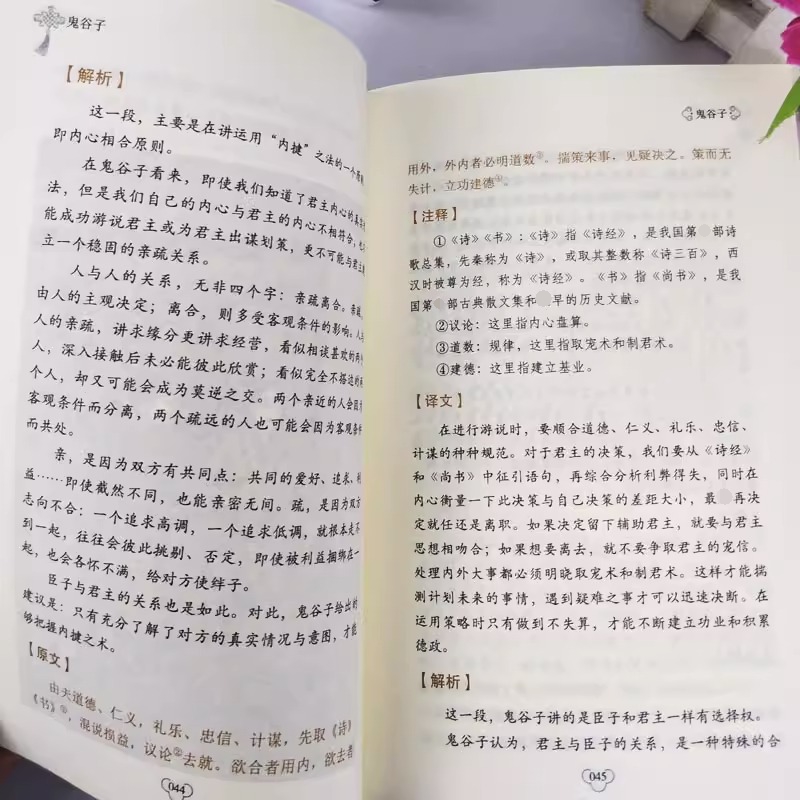 鬼谷子
【解析】
这一段，主要是在讲运用“内揵”之法的一个
即内心相合原则。
在鬼谷子看来，即使我们知道了君主内心的真
法，但是我们自己的内心与君主的内心不相符合，也
能成功游说君主或为君主出谋划策，更不可能与君主
立一个稳固的亲疏关系。
人与人的关系，无非四个字：亲疏离合。亲疏
由人的主观决定；离合，则多受客观条件的影响。人与
人的亲疏，讲求缘分更讲求经营，看似相谈甚欢的两
人，深入接触后未必能彼此欣赏；看似完全不搭边的
个人，却又可能会成为莫逆之交。两个亲近的人会因
客观条件而分离，两个疏远的人也可能会因为客观条件
而共处。
亲，是因为双方有共同点：共同的爱好、追求、利
益……即使截然不同，也能亲密无间。疏，是因为双方
志向不合：一个追求高调，一个追求低调，就根本走不
到一起，往往会彼此挑剔、否定，即使被利益捆绑在一
起，也会各怀不满，给对方使绊子。
臣子与君主的关系也是如此。对此，鬼谷子给出的
建议是：只有充分了解了对方的真实情况与意图，才能
够把握内揵之术。
【原文】
由夫道德、仁义，礼乐、忠信、计谋，先取《诗》
《书》①，混说损益，议论②去就。欲合者用内，欲去者
044
鬼谷子
用外，外内者必明道数③。揣策来事，见疑决之。策而无
失计，立功建德④。
【注释】
①《诗》《书》：《诗》指《诗经》，是我国第 部诗
歌总集，先秦称为《诗》，或取其整数称《诗三百》，西
汉时被尊为经，称为《诗经》。《书》指《尚书》，是我
国第 部古典散文集和 早的历史文献。
②议论：这里指内心盘算。
③道数：规律，这里指取宠术和制君术。
④建德：这里指建立基业。
【译文】
在进行游说时，要顺合道德、仁义、礼乐、忠信、
计谋的种种规范。对于君主的决策，我们要从《诗经》
和《尚书》中征引语句，再综合分析利弊得失，同时在
内心衡量一下此决策与自己决策的差距大小，最 再决
定就任还是离职。如果决定留下辅助君主，就要与君主
思想相吻合；如果想要离去，就不要争取君主的宠信。
处理内外大事都必须明晓取宠术和制君术。这样才能揣
测计划未来的事情，遇到疑难之事才可以迅速决断。在
运用策略时只有做到不失算，才能不断建立功业和积累
德政。
【解析】
这一段，鬼谷子讲的是臣子和君主一样有选择权。
鬼谷子认为，君主与臣子的关系，是一种特殊的合
045